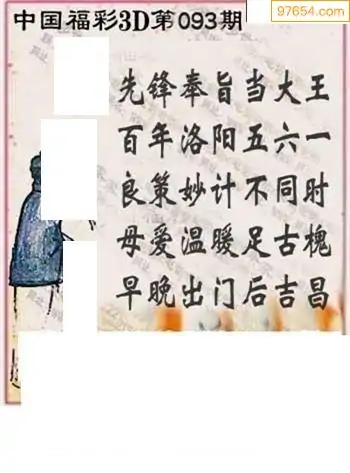 中国福彩3D第093期
97654.com
先锋奉旨当大王
百年洛阳五六一
良策妙计不同时
母爱温暖足古槐
早晚出门后吉昌